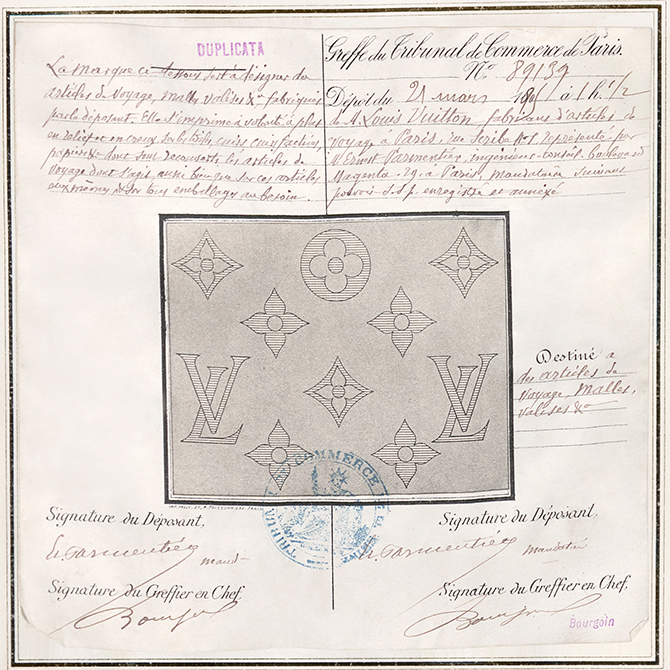 DUPLICATA
La marque ci-dessous sert à désigner des
articles de voyage, malles valises &a fabriqués
par le déposant. Elle s'imprime à volonté à plat
en relief et en creux sur les toiles, cuirs, cuirs factices,
papiers & dont sont recouverts les articles de
voyage dont s'agit aussi bien que sur ces articles
eux-mêmes & sur tous emballages au besoin.
Greffe du Tribunal de Commerce de Paris.
No 89139
Dépôt du 21 mars à 1h 1/2
de M. Louis Vuitton fabricant d'articles de
voyage à Paris, rue Scribe No 1 représenté par
M. Ernest Parmentier, ingénieur-conseil, Boulevard
Magenta, 29, à Paris, mandataire suivant
pouvoir S.S.P. enregistré et annexé
LV
LV
Destiné à
des articles de
voyage, malles,
valises &a
TRIBUNAL DE COMMERCE DE LA SEINE
Signature du Déposant,
E. Parmentier mand
Signature du Greffier en Chef,
Signature du Déposant,
E. Parmentier mandataire
Signature du Greffier en Chef,
Bourgoin